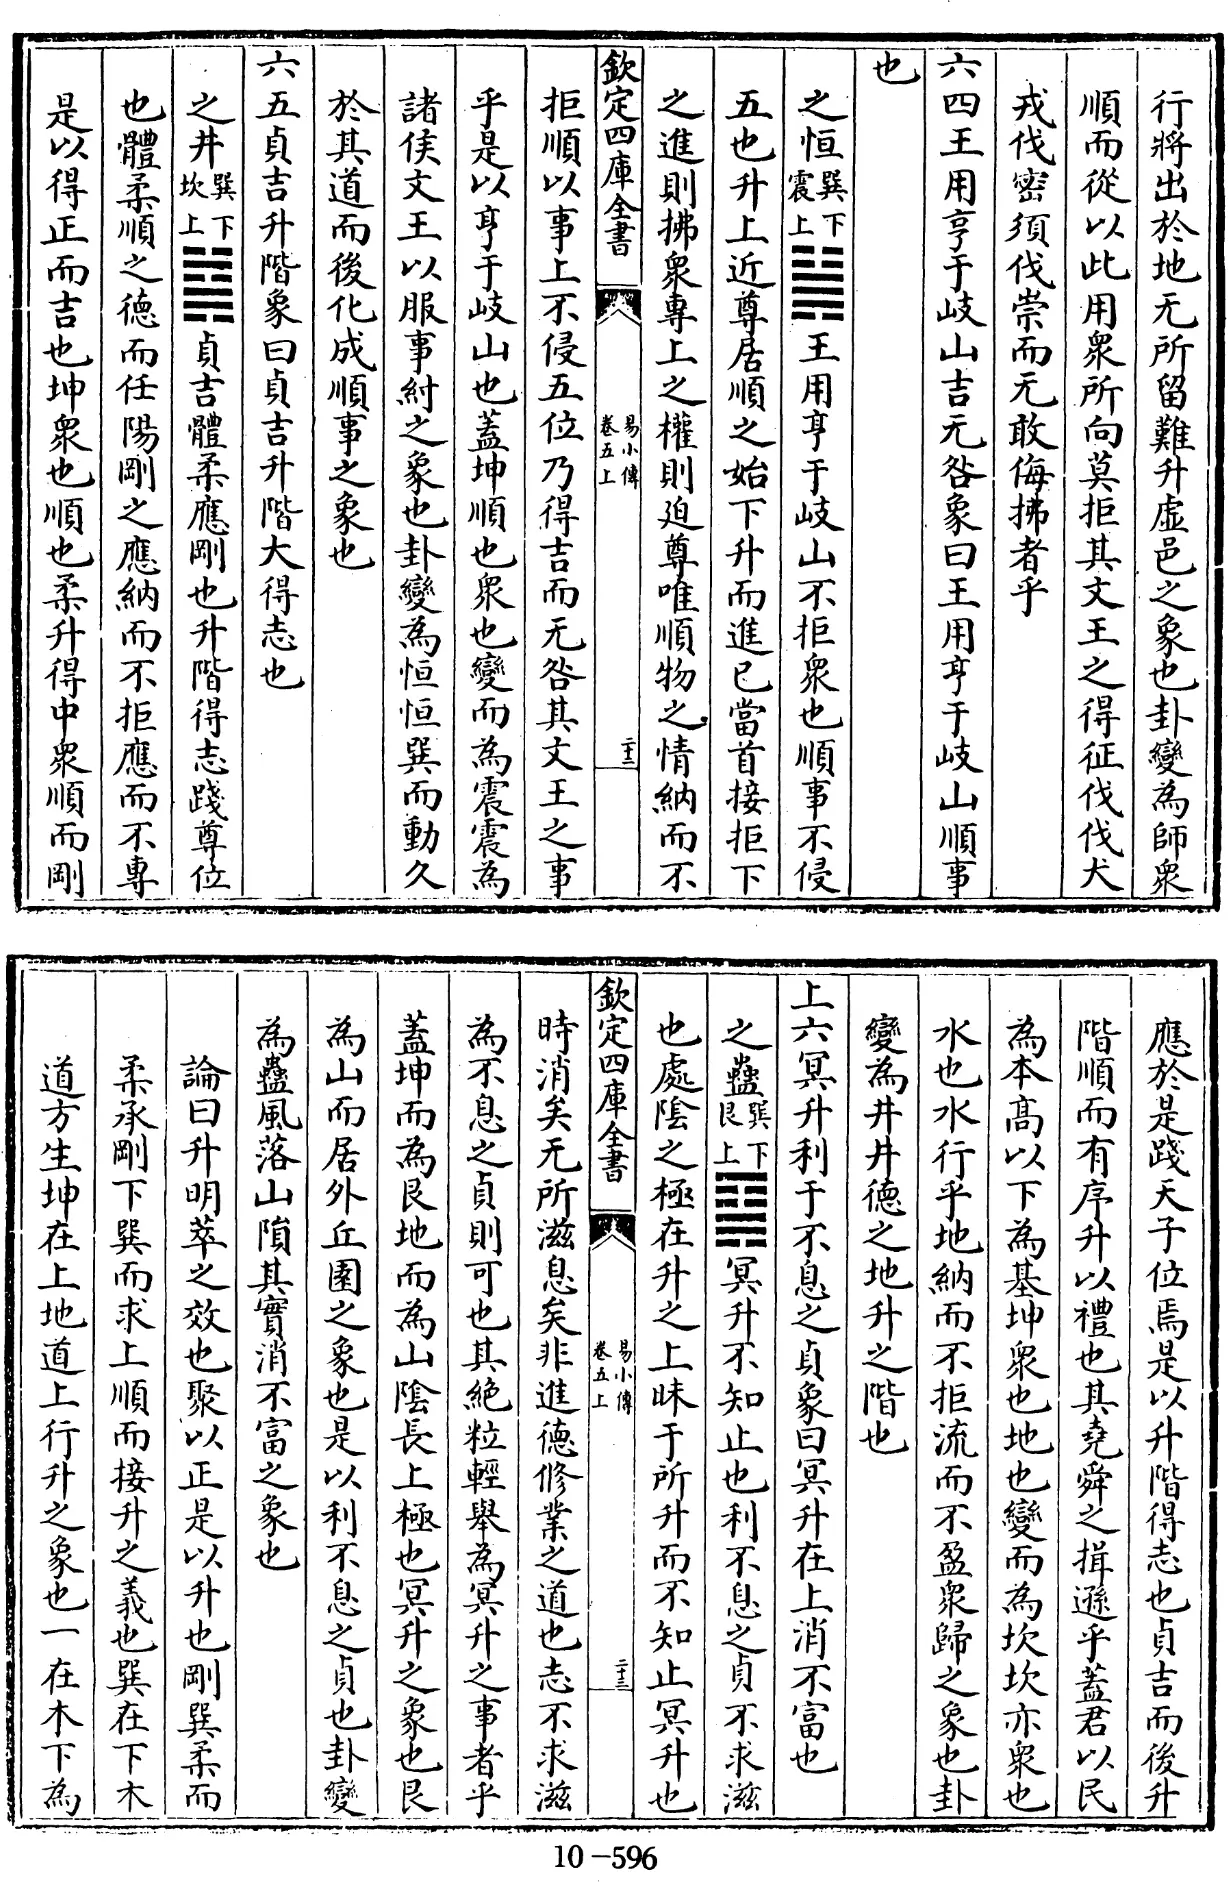 行將出於地无所留難升虛邑之象也卦變為師衆
順而從以此用衆所向莫拒其文王之得征伐伐犬
戎伐密須伐崇而无敢侮拂者乎
六四王用亨于岐山吉无咎象曰王用亨于岐山順事
也
之恒巽下震上王用亨于岐山不拒衆也順事不侵
五也升上近尊居順之始下升而進已當首接拒下
之進則拂衆專上之權則迫尊唯順物之情納而不
欽定四庫全書 易小傳卷五上 二十二
拒順以事上不侵五位乃得吉而无咎其文王之事
乎是以亨于岐山也蓋坤順也衆也變而為震震為
諸侯文王以服事紂之象也卦變為恒恒巽而動久
於其道而後化成順事之象也
六五貞吉升階象曰貞吉升階大得志也
之井巽下坎上貞吉體柔應剛也升階得志踐尊位
也體柔順之德而任陽剛之應納而不拒應而不專
是以得正而吉也坤衆也順也柔升得中衆順而剛
應於是踐天子位焉是以升階得志也貞吉而後升
階順而有序升以禮也其堯舜之揖遜乎蓋君以民
為本高以下為基坤衆也地也變而為坎坎亦衆也
水也水行乎地納而不拒流而不盈衆歸之象也卦
變為井井德之地升之階也
上六冥升利于不息之貞象曰冥升在上消不富也
之蠱巽下艮上冥升不知止也利不息之貞不求滋
也處陰之極在升之上昧于所升而不知止冥升也
欽定四庫全書 易小傳卷五上 二十三
時消矣无所滋息矣非進德修業之道也志不求滋
為不息之貞則可也其絶粒輕舉為冥升之事者乎
蓋坤而為艮地而為山陰長上極也冥升之象也艮
為山而居外丘園之象也是以利不息之貞也卦變
為蠱風落山隕其實消不富之象也
論曰升明萃之效也聚以正是以升也剛巽柔而
柔承剛下巽而求上順而接升之義也巽在下木
道方生坤在上地道上行升之象也一在木下為
10-596